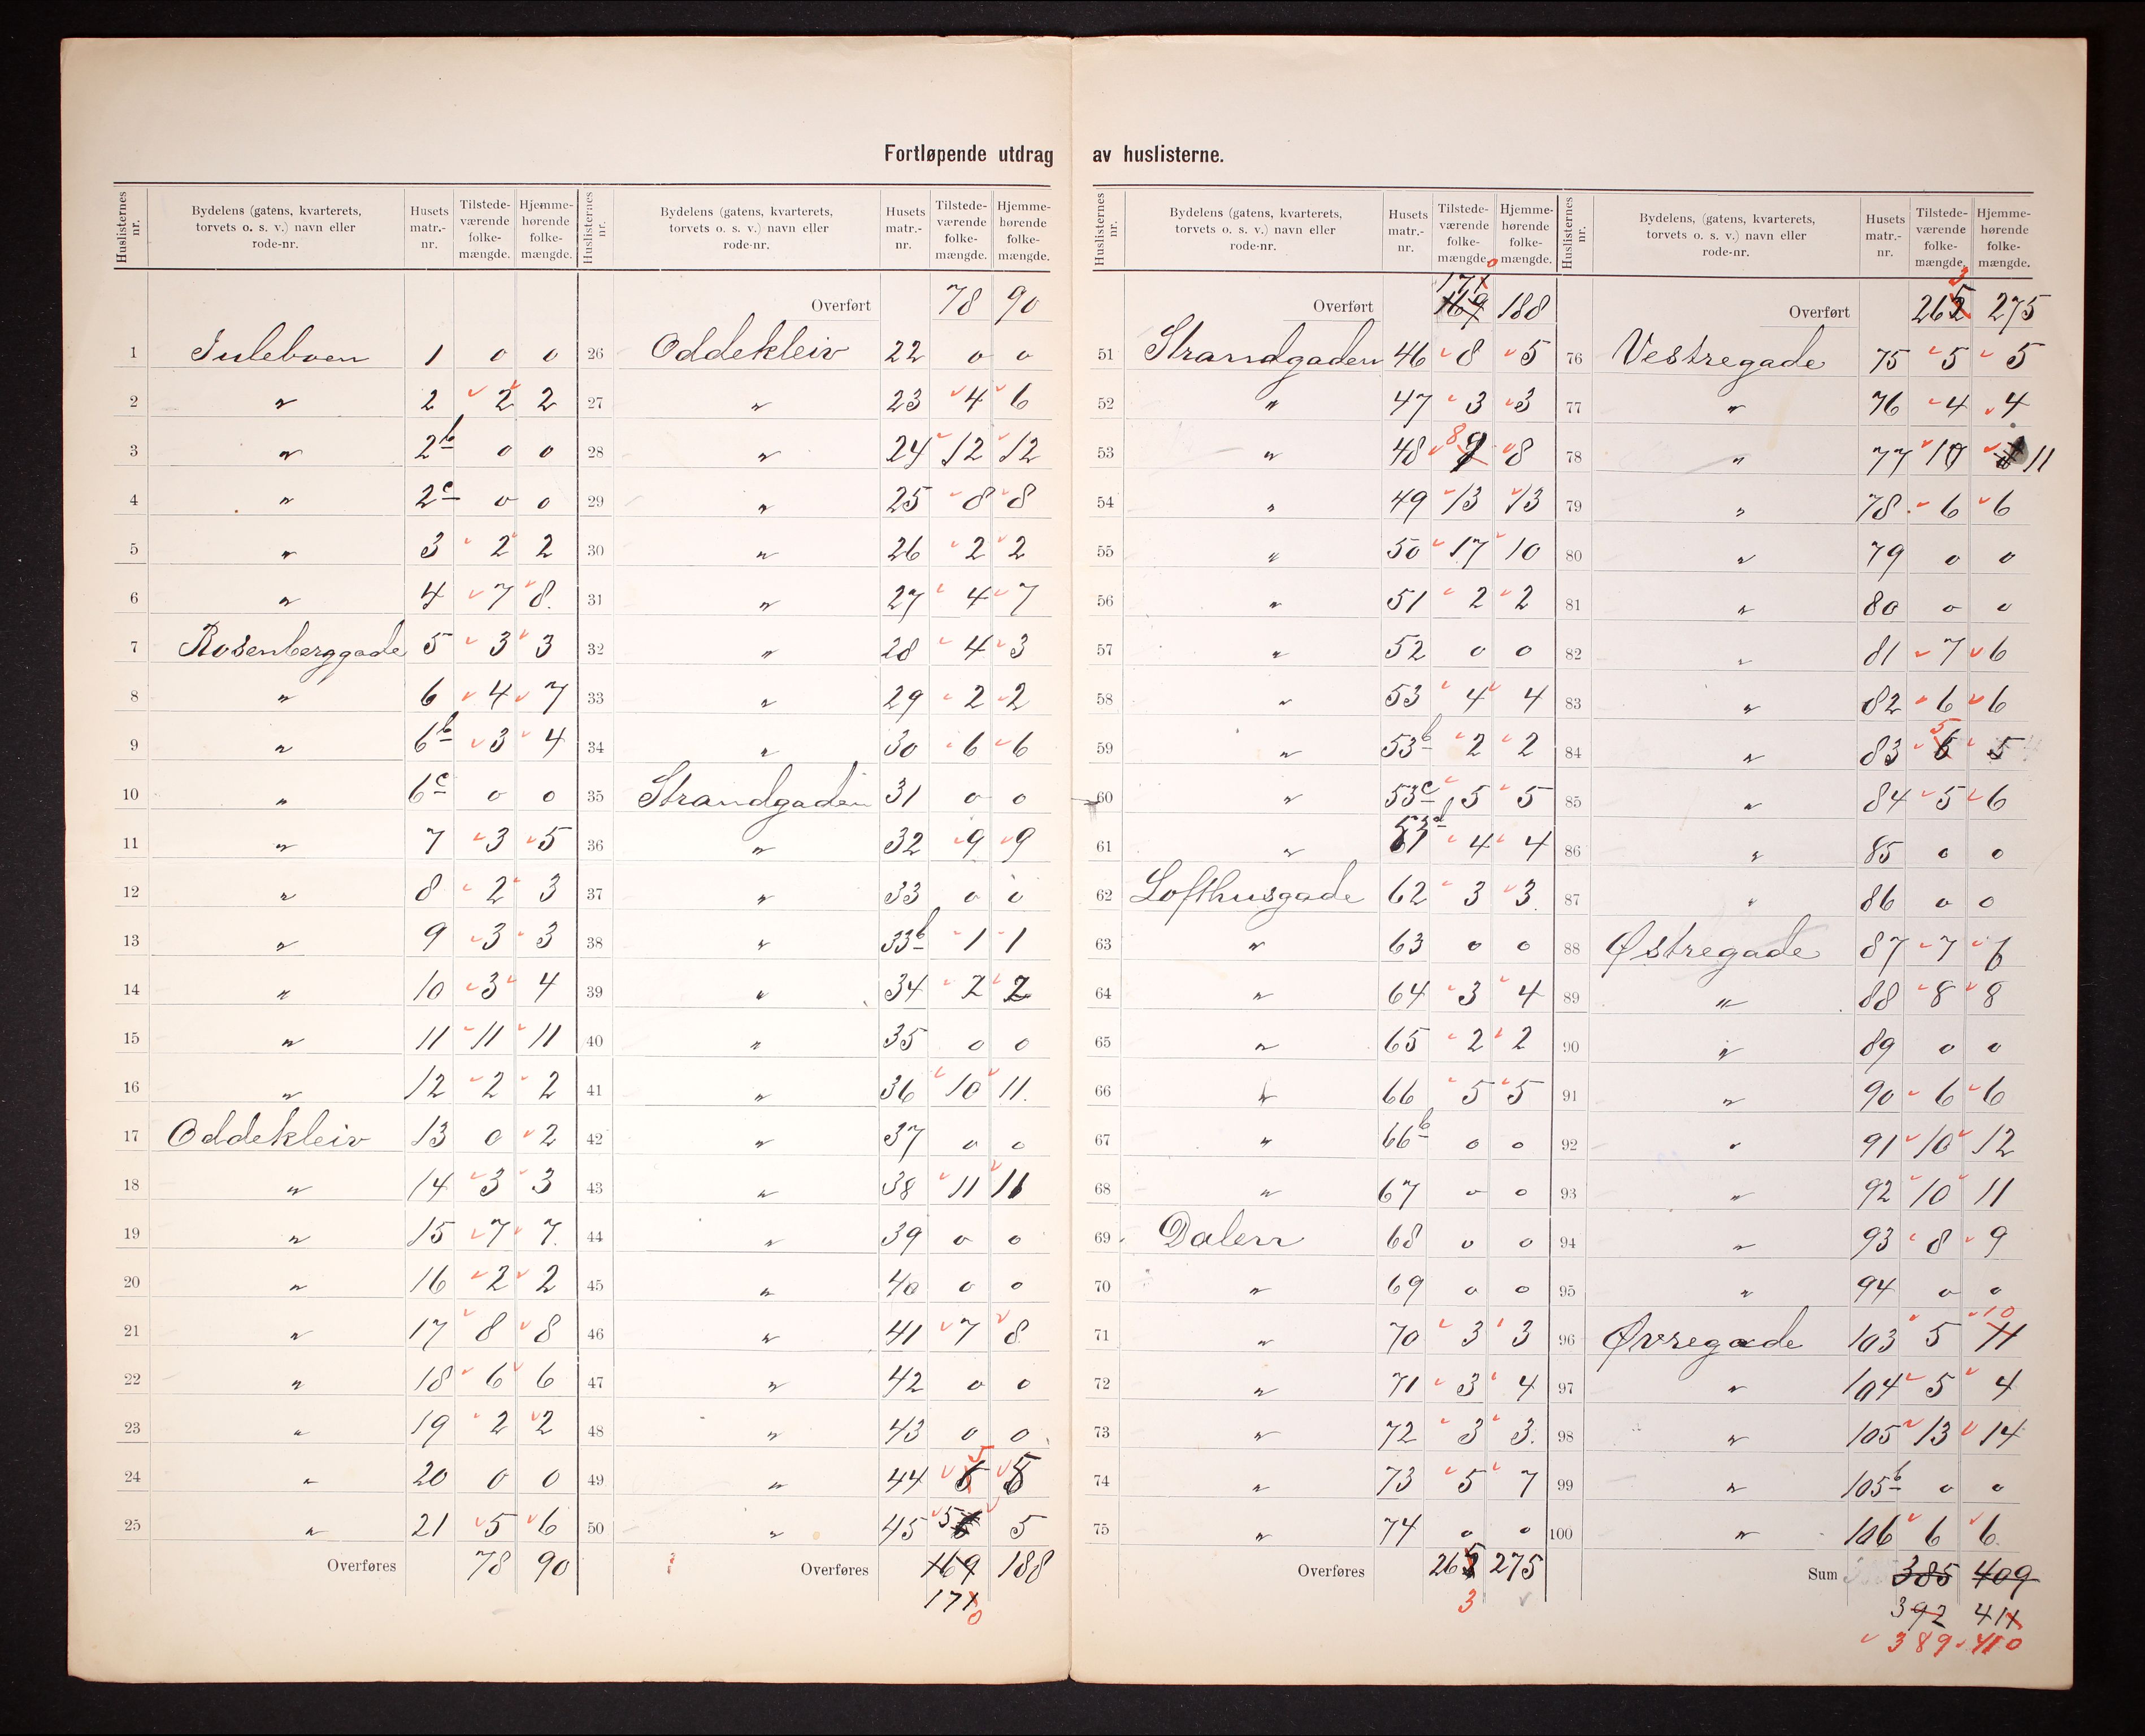 Fortløpende utdrag av huslisterne.
Huslisternes nr. | Bydelens (gatens, kvarterets, torvets o. s. v.) navn eller rode-nr. | Husets matr.-nr. | Tilstedeværende folkemængde. | Hjemmehørende folkemængde.
1 Suleboen 1 0 0
2 " 2 2 2
3 " 2b 0 0
4 " 2c 0 0
5 " 3 2 2
6 " 4 7 8.
7 Rosenberggade 5 3 3
8 " 6 4 7
9 " 6b 3 4
10 " 6c 0 0
11 " 7 3 5
12 " 8 2 3
13 " 9 3 3
14 " 10 3 4
15 " 11 11 11
16 " 12 2 2
17 Oddekleiv 13 0 2
18 " 14 3 3
19 " 15 7 7.
20 " 16 2 2
21 " 17 8 8
22 " 18 6 6
23 " 19 2 2
24 " 20 0 0
25 " 21 5 6
Overføres 78 90
Huslisternes nr. | Bydelens (gatens, kvarterets, torvets o. s. v.) navn eller rode-nr. | Husets matr.-nr. | Tilstedeværende folkemængde. | Hjemmehørende folkemængde.
Overført 78 90
26 Oddekleiv 22 0 0
27 " 23 4 6
28 " 24 12 12
29 " 25 8 8
30 " 26 2 2
31 " 27 4 7
32 " 28 4 3
33 " 29 2 2
34 " 30 6 6
35 Strandgaden 31 0 0
36 " 32 9 9
37 " 33 0 0
38 " 33b 1 1
39 " 34 2 2
40 " 35 0 0
41 " 36 10 11.
42 " 37 0 0
43 " 38 11 11
44 " 39 0 0
45 " 40 0 0
46 " 41 7 8
47 " 42 0 0
48 " 43 0 0
49 " 44 5 5
50 " 45 5 5
Overføres 169 188
171 0
Huslisternes nr. | Bydelens (gatens, kvarterets, torvets o. s. v.) navn eller rode-nr. | Husets matr.-nr. | Tilstedeværende folkemængde. | Hjemmehørende folkemængde.
171 0
Overført 169 188
51 Strandgaden 46 8 5
52 " 47 3 3
53 " 48 8 9 8
54 " 49 13 13
55 " 50 17 10
56 " 51 2 2
57 " 52 0 0
58 " 53 4 4
59 " 53b 2 2
60 " 53c 5 5
61 " 53d 4 4
62 Lofthusgade 62 3 3.
63 " 63 0 0
64 " 64 3 4
65 " 65 2 2
66 " 66 5 5
67 " 66b 0 0
68 " 67 0 0
69 Dalen 68 0 0
70 " 69 0 0
71 " 70 3 3
72 " 71 3 4
73 " 72 3 3.
74 " 73 5 7
75 " 74 0 0
Overføres 265 275
3
Huslisternes nr. | Bydelens, (gatens, kvarterets, torvets o. s. v.) navn eller rode-nr. | Husets matr.-nr. | Tilstedeværende folkemængde. | Hjemmehørende folkemængde.
3
Overført 265 275
76 Vestregade 75 5 5
77 " 76 4 4
78 " 77 10 11
79 " 78 6 6
80 " 79 0 0
81 " 80 0 0
82 " 81 7 6
83 " 82 6 6
84 " 83 5 6 5
85 " 84 5 6
86 " 85 0 0
87 " 86 0 0
88 Østregade 87 7 6
89 " 88 8 8
90 " 89 0 0
91 " 90 6 6
92 " 91 10 12
93 " 92 10 11
94 " 93 8 9
95 " 94 0 0
96 Øvregade 103 5 10 11
97 " 104 5 4
98 " 105 13 14
99 " 105b 0 0
100 " 106 6 6.
Sum 385 409
392 411
389 410